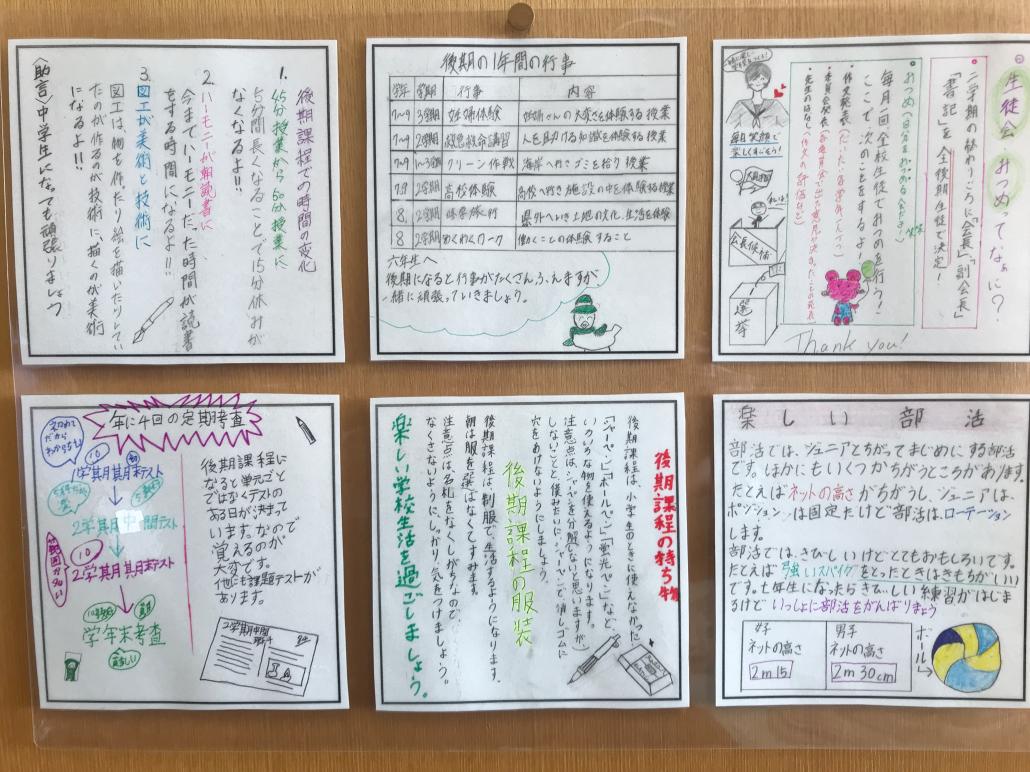 後期課程での時間の変化
1. 45分授業から50分授業に
5分間長くなることで15分休みが
なくなるよ!!
2. ハーモニーが朝読書に
今までハーモニーだった時間が読書
をする時間になるよ!!
3. 図工が美術と技術に
図工は、物を作ったり絵を描いたりしてい
たのが作るのが技術に、描くのが美術
になるよ!!
〈助言〉中学生になっても頑張りましょう
後期の1年間の行事
学年 学期 行事 内容
7~9 3学期 妊婦体験 妊婦さんの大変さを体験する授業
7~9 2学期 救急救命講習 人を助ける知識を体験する授業
7~9 1~3学期 クリーン作戦 海岸へ行きゴミを拾う授業
7.9 2学期 高校体験 高校へ行き施設の中を体験する授業
8 2学期 修学旅行 県外へいき土地の文化、生活を体験
8 2学期 わくわくワーク 働くことの体験すること
六年生へ
後期になると行事がたくさんふえますが
一緒に頑張っていきましょう。
生徒会・おつめってなぁに?
二学期の替わりごろに「会長」「副会長」
「書記」を全後期生徒で決定!
おつめ(自分をおつめる会だよ!)
毎月1回全校生徒でおつめを行う!
ここで、次のことをするよ!
・作文発表
・委員会発表
・先生のはなし
毎日笑顔で
楽しくすごそう!
会長候補
選挙
Thank you!
年に4回の定期考査
初めて
だから
わからない
1学期期末テスト
2学期中間テスト
範囲が多い
2学期期末テスト
学年末考査
後期課程に
なると単元ごと
ではなくテストの
ある日が決まって
います。なので
覚えるのが
大変です。
他にも課題テストが
あります。
2学期中間
後期課程の持ち物
後期課程は、小学生のときに使えなかった
「シャーペン」「ボールペン」「蛍光ペン」など、
いろいろな物を使えるようになります。
注意点は、シャーペンを分解しないと思いますが、
しないことと、僕みたいにシャーペンで消しゴムに
穴をあけないようにしましょう。
後期課程の服装
後期課程は、制服で、生活するようになります。
朝は服を選ばなくてすみます。
注意点は、名札をなくしがちなので、
なくさないように、しっかり気をつけましょう。
楽しい学校生活を過ごしましょう。
楽しい部活
部活では、ジュニアとちがってまじめにする部活
です。ほかにもいくつかちがうところがあります。
たとえばネットの高さがちがうし、ジュニアは、
ポジションは固定だけど部活は、ローテーション
します。
部活では、きびしいけどとてもおもしろいです。
たとえば強いスパイクをとったときはきもちがいい
です。七年生になったらきびしい練習がはじま
るけどいっしょに部活をがんばりましょう
女子
ネットの高さ
2m15
男子
ネットの高さ
2m30cm
ボール